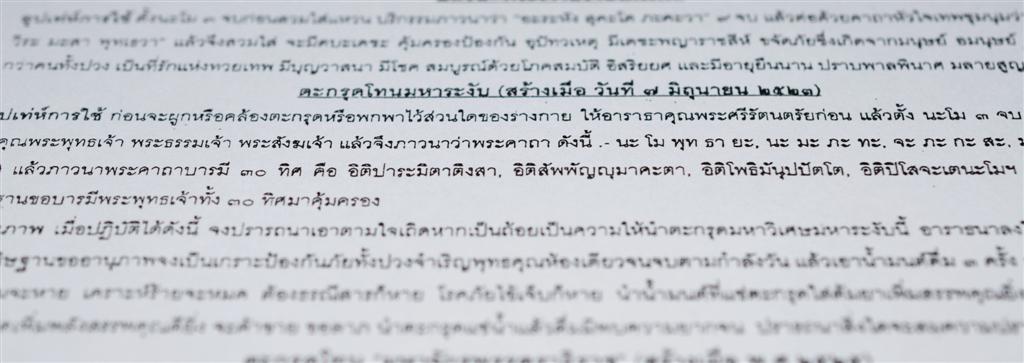 อุปเท่ห์การใช้ ตั้งนะโม ๓ จบก่อนสวมใส่แหวน บริกรรมภาวนาว่า "อะระหัง สุคะโต ภะคะวา" ๙ จบ แล้วต่อด้วยคาถาหัวใจเทพชุมนุมว่า
แล้วจึงสวมใส่ จะมีตบะเดชะ คุ้มครองป้องกัน อุบัทวเหตุ มีเดชะพญาราชสีห์ ขจัดภัยซึ่งเกิดจากมนุษย์ อมนุษย์
กว่าคนทั้งปวง เป็นที่รักแห่งทวยเทพ มีบุญวาสนา มีโชค สมบูรณ์ด้วยโภคสมบัติ อิสริยยศ และมีอายุยืนนาน ปราบพาลพินาศ มลายสูญ
ตะกรุดโทนมหาระงับ (สร้างเมื่อ วันที่ ๗ มิถุนายน ๒๕๒๓)
ปเท่ห์การใช้ ก่อนจะผูกหรือคล้องตะกรุดหรือพกพาไว้ส่วนใดของร่างกาย ให้อาราธาคุณพระศรีรัตนตรัยก่อน แล้วตั้ง นะโม ๓ จบ
คุณพระพุทธเจ้า พระธรรมเจ้า พระสังฆเจ้า แล้วจึงภาวนาว่าพระคาถา ดังนี้ .- นะ โม พุท ธา ยะ, นะ มะ ภะ ทะ, จะ ภะ กะ สะ,
) แล้วภาวนาพระคาถาบารมี ๓๐ ทิศ คือ อิติปาระมิตาติงสา, อิติสัพพัญญุมาคะตา, อิติโพธิมันุปปัตโต, อิติปิโสจะเตนะโมฯ
ฐานขอบารมีพระพุทธเจ้าทั้ง ๓๐ ทิศมาคุ้มครอง
ภาพ เมื่อปฏิบัติได้ดังนี้ จงปรารถนาเอาตามใจเถิดหากเป็นถ้อยเป็นความให้นำตะกรุดมหาวิเศษมหาระงับนี้ อาราธนาลง
ษฐานขออานุภาพจงเป็นเกราะป้องกันภัยทั้งปวงจำเริญพุทธคุณห้องเดียวจนจบตามกำลังวัน แล้วเอาน้ำมนต์ดื่ม ๓ ครั้ง
จะหาย เคราะห์ร้ายจะหมด ต้องธรณีสารก็หาย โรคภัยไข้เจ็บก็หาย นำน้ำมนต์ที่แช่ตะกรุดใส่ต้มยาเพิ่มสรรพคุณยิ่ง